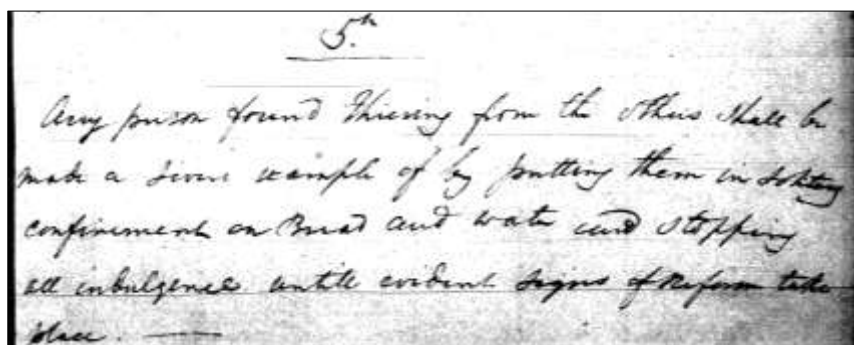 5.th
Any person found Thieving from the others shall be
made a severe example of by putting them in solitary
confinement on Bread and water and stopping
all indulgence untill evident signs of Reform take
place. —